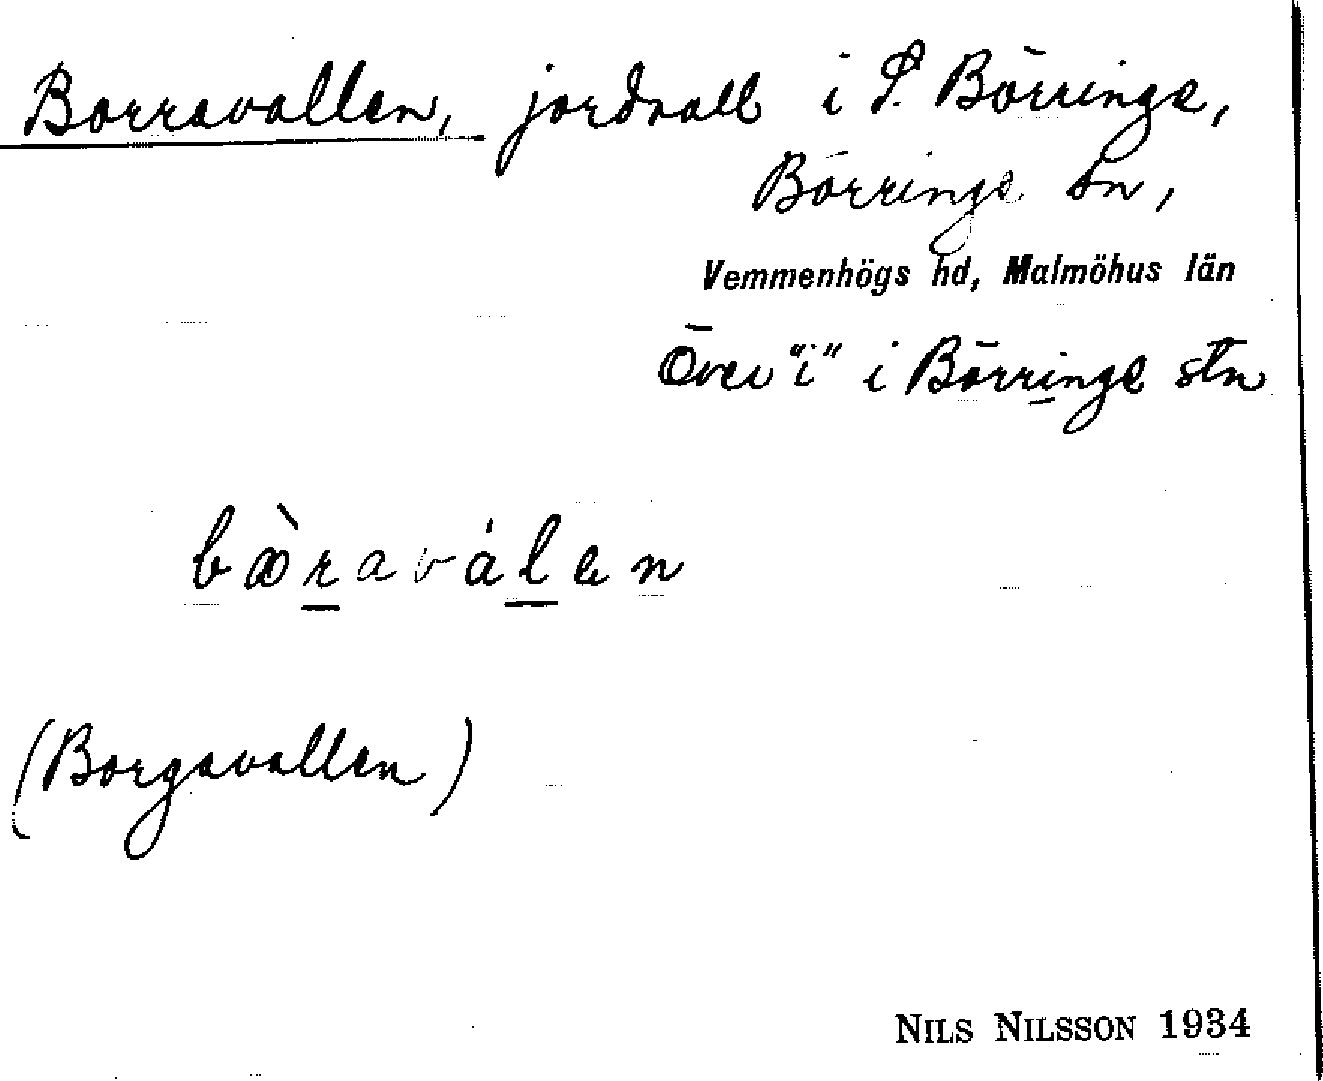 Borravallen, jordvall i S. Börringe,
Börringe sn,
Vemmenhögs hd, Malmöhus län
Över "i" i Börringe stn
bæ̀ravȧlen
(Borgavallen)
NILS NILSSON 1934